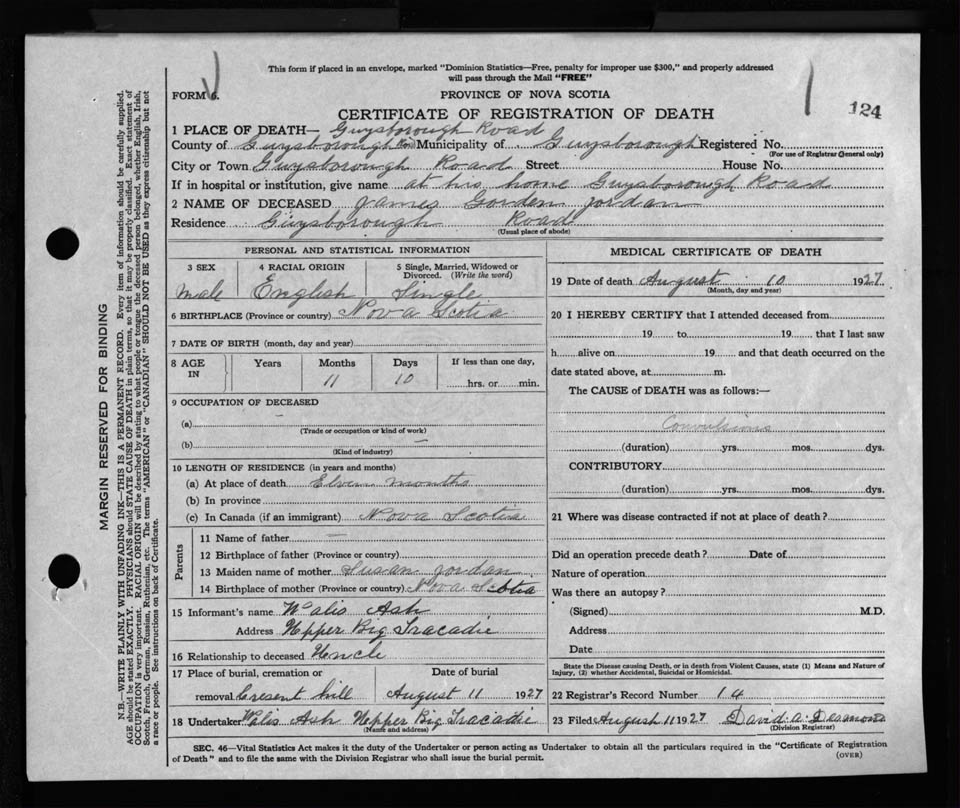 This form if placed in an envelope, marked "Dominion Statistics—Free, penalty for improper use $300," and properly addressed
will pass through the Mail "FREE"
FORM 6.
PROVINCE OF NOVA SCOTIA
124
CERTIFICATE OF REGISTRATION OF DEATH
1 PLACE OF DEATH— Guysborough Road
County of Guysborough Municipality of Guysborough Registered No.
(For use of Registrar General only)
City or Town Guysborough Road Street House No.
If in hospital or institution, give name at his home Guysborough Road
2 NAME OF DECEASED James Gorden Jordan
Residence Guysborough Road
(Usual place of abode)
MARGIN RESERVED FOR BINDING
N.B.—WRITE PLAINLY WITH UNFADING INK—THIS IS A PERMANENT RECORD. Every item of information should be carefully supplied.
AGE should be stated EXACTLY. PHYSICIANS should STATE CAUSE OF DEATH in plain terms, so that it may be properly classified. Exact statement of
OCCUPATION is very important. RACIAL ORIGIN will be described by stating to what people or tongue the deceased person belonged, whether English, Irish,
Scotch, French, German, Russian, Ruthenian, etc. The terms "AMERICAN" or "CANADIAN" SHOULD NOT BE USED as they express citizenship but not
a race or people. See instructions on back of Certificate.
PERSONAL AND STATISTICAL INFORMATION
3 SEX 4 RACIAL ORIGIN 5 Single, Married, Widowed or
Divorced. (Write the word)
male English Single
6 BIRTHPLACE (Province or country) Nova Scotia
7 DATE OF BIRTH (month, day and year)
8 AGE IN Years Months Days If less than one day,
11 10 hrs. or min.
9 OCCUPATION OF DECEASED
(a) –
(Trade or occupation or kind of work)
(b) –
(Kind of industry)
10 LENGTH OF RESIDENCE (in years and months)
(a) At place of death Elven months
(b) In province
(c) In Canada (if an immigrant) Nova Scotia
Parents
11 Name of father –
12 Birthplace of father (Province or country)
13 Maiden name of mother Susan Jordan
14 Birthplace of mother (Province or country) Nova Scotia
15 Informant's name Walis Ash
Address Upper Big Tracadie
16 Relationship to deceased Uncle
17 Place of burial, cremation or Date of burial
removal Cresent hill August 11 1927
18 Undertaker Walis Ash Upper Big Tracadie
(Name and address)
MEDICAL CERTIFICATE OF DEATH
19 Date of death August 10 1927
(Month, day and year)
20 I HEREBY CERTIFY that I attended deceased from
19 to 19 that I last saw
h alive on 19 and that death occurred on the
date stated above, at m.
The CAUSE of DEATH was as follows:—
Convulsions
(duration) yrs. mos. dys.
CONTRIBUTORY
(duration) yrs. mos. dys.
21 Where was disease contracted if not at place of death?
Did an operation precede death? Date of
Nature of operation
Was there an autopsy?
(Signed) M.D.
Address
Date
State the Disease causing Death, or in death from Violent Causes, state (1) Means and Nature of
Injury, (2) whether Accidental, Suicidal or Homicidal.
22 Registrar's Record Number 14
23 Filed August 11 1927 David A Desmond
(Division Registrar)
SEC. 46—Vital Statistics Act makes it the duty of the Undertaker or person acting as Undertaker to obtain all the particulars required in the "Certificate of Registration
of Death" and to file the same with the Division Registrar who shall issue the burial permit.
(OVER)